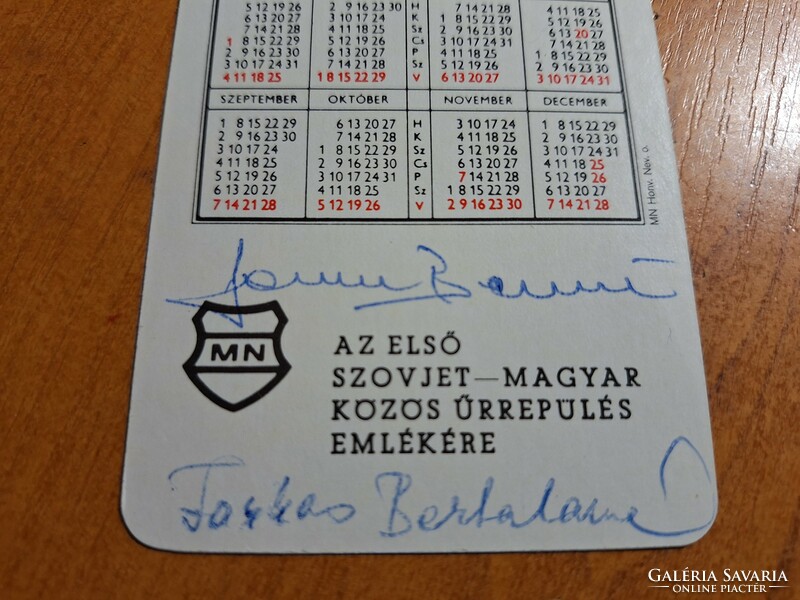 5 12 19 26
6 13 20 27
7 14 21 28
1 8 15 22 29
2 9 16 23 30
3 10 17 24 31
4 11 18 25
2 9 16 23 30
3 10 17 24
4 11 18 25
5 12 19 26
6 13 20 27
7 14 21 28
1 8 15 22 29
H
K
Sz
Cs
P
Sz
V
7 14 21 28
1 8 15 22 29
2 9 16 23 30
3 10 17 24
4 11 18 25
5 12 19 26
6 13 20 27
4 11 18 25
5 12 19 26
6 13 20 27
7 14 21 28
1 8 15 22 29
2 9 16 23 30
3 10 17 24 31
SZEPTEMBER OKTÓBER NOVEMBER DECEMBER
1 8 15 22 29
2 9 16 23 30
3 10 17 24
4 11 18 25
5 12 19 26
6 13 20 27
7 14 21 28
6 13 20 27
7 14 21 28
1 8 15 22 29
2 9 16 23 30
3 10 17 24 31
4 11 18 25
5 12 19 26
H
K
Sz
Cs
P
Sz
V
3 10 17 24
4 11 18 25
5 12 19 26
6 13 20 27
7 14 21 28
1 8 15 22 29
2 9 16 23 30
1 8 15 22 29
2 9 16 23 30
3 10 17 24 31
4 11 18 25
5 12 19 26
6 13 20 27
7 14 21 28
MN Honv. Nev. o.
MN
AZ ELSŐ
SZOVJET—MAGYAR
KÖZÖS ŰRREPÜLÉS
EMLÉKÉRE
Farkas Bertalanné
GALÉRIA SAVARIA
ONLINE PIACTÉR